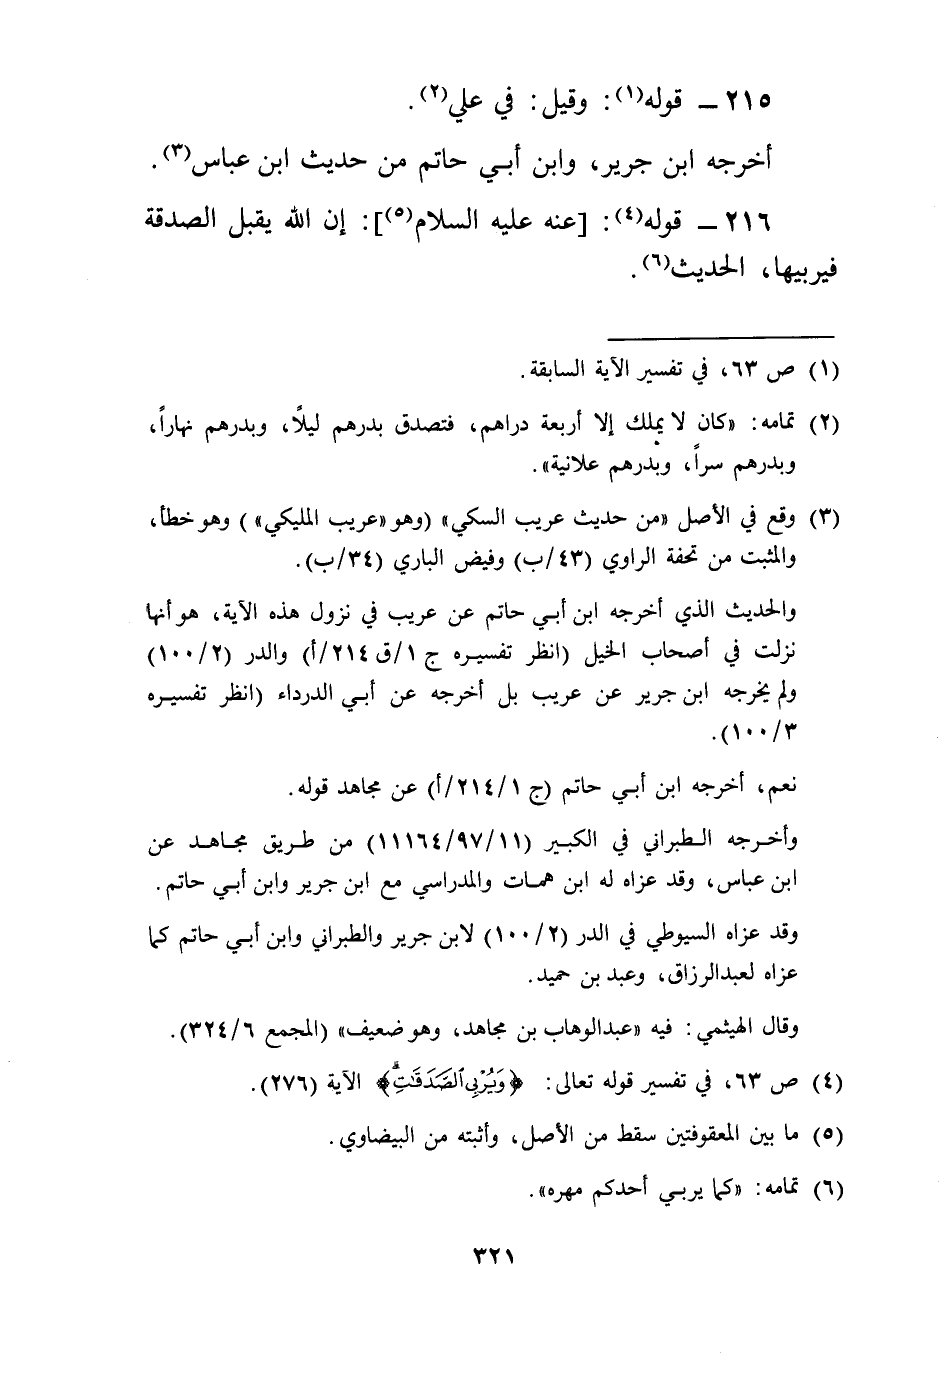 ٢١٥ ــ قوله(١): وقيل: في علي(٢).
أخرجه ابن جرير، وابن أبي حاتم من حديث ابن عباس(٣).
٢١٦ ــ قوله(٤): [عنه عليه السلام(٥)]: إن الله يقبل الصدقة
فيربيها، الحديث(٦).
(١) ص ٦٣، في تفسير الآية السابقة.
(٢) تمامه: «كان لا يملك إلا أربعة دراهم، فتصدق بدرهم ليلًا، وبدرهم نهاراً،
وبدرهم سراً، وبدرهم علانية».
(٣) وقع في الأصل «من حديث عريب السكي» (وهو «عريب المليكي») وهو خطأ،
والمثبت من تحفة الراوي (٤٣/ب) وفيض الباري (٣٤/ب).
والحديث الذي أخرجه ابن أبي حاتم عن عريب في نزول هذه الآية، هو أنها
نزلت في أصحاب الخيل (انظر تفسيره ج ١/ق ٢١٤/أ) والدر (١٠٠/٢)
ولم يخرجه ابن جرير عن عريب بل أخرجه عن أبي الدرداء (انظر تفسيره
١٠٠/٣).
نعم، أخرجه ابن أبي حاتم (ج ٢١٤/١/أ) عن مجاهد قوله.
وأخرجه الطبراني في الكبير (١١١٦٤/٩٧/١١) من طريق مجاهد عن
ابن عباس، وقد عزاه له ابن همات والمدراسي مع ابن جرير وابن أبي حاتم.
وقد عزاه السيوطي في الدر (١٠٠/٢) لابن جرير والطبراني وابن أبي حاتم كما
عزاه لعبدالرزاق، وعبد بن حميد.
وقال الهيثمي: فيه «عبدالوهاب بن مجاهد، وهو ضعيف» (المجمع ٣٢٤/٦).
(٤) ص ٦٣، في تفسير قوله تعالى: ﴿وَيُرْبِي ٱلصَّدَقَٰتِۗ﴾ الآية (٢٧٦).
(٥) ما بين المعقوفتين سقط من الأصل، وأثبته من البيضاوي.
(٦) تمامه: «كما يربي أحدكم مهره».
٣٢١